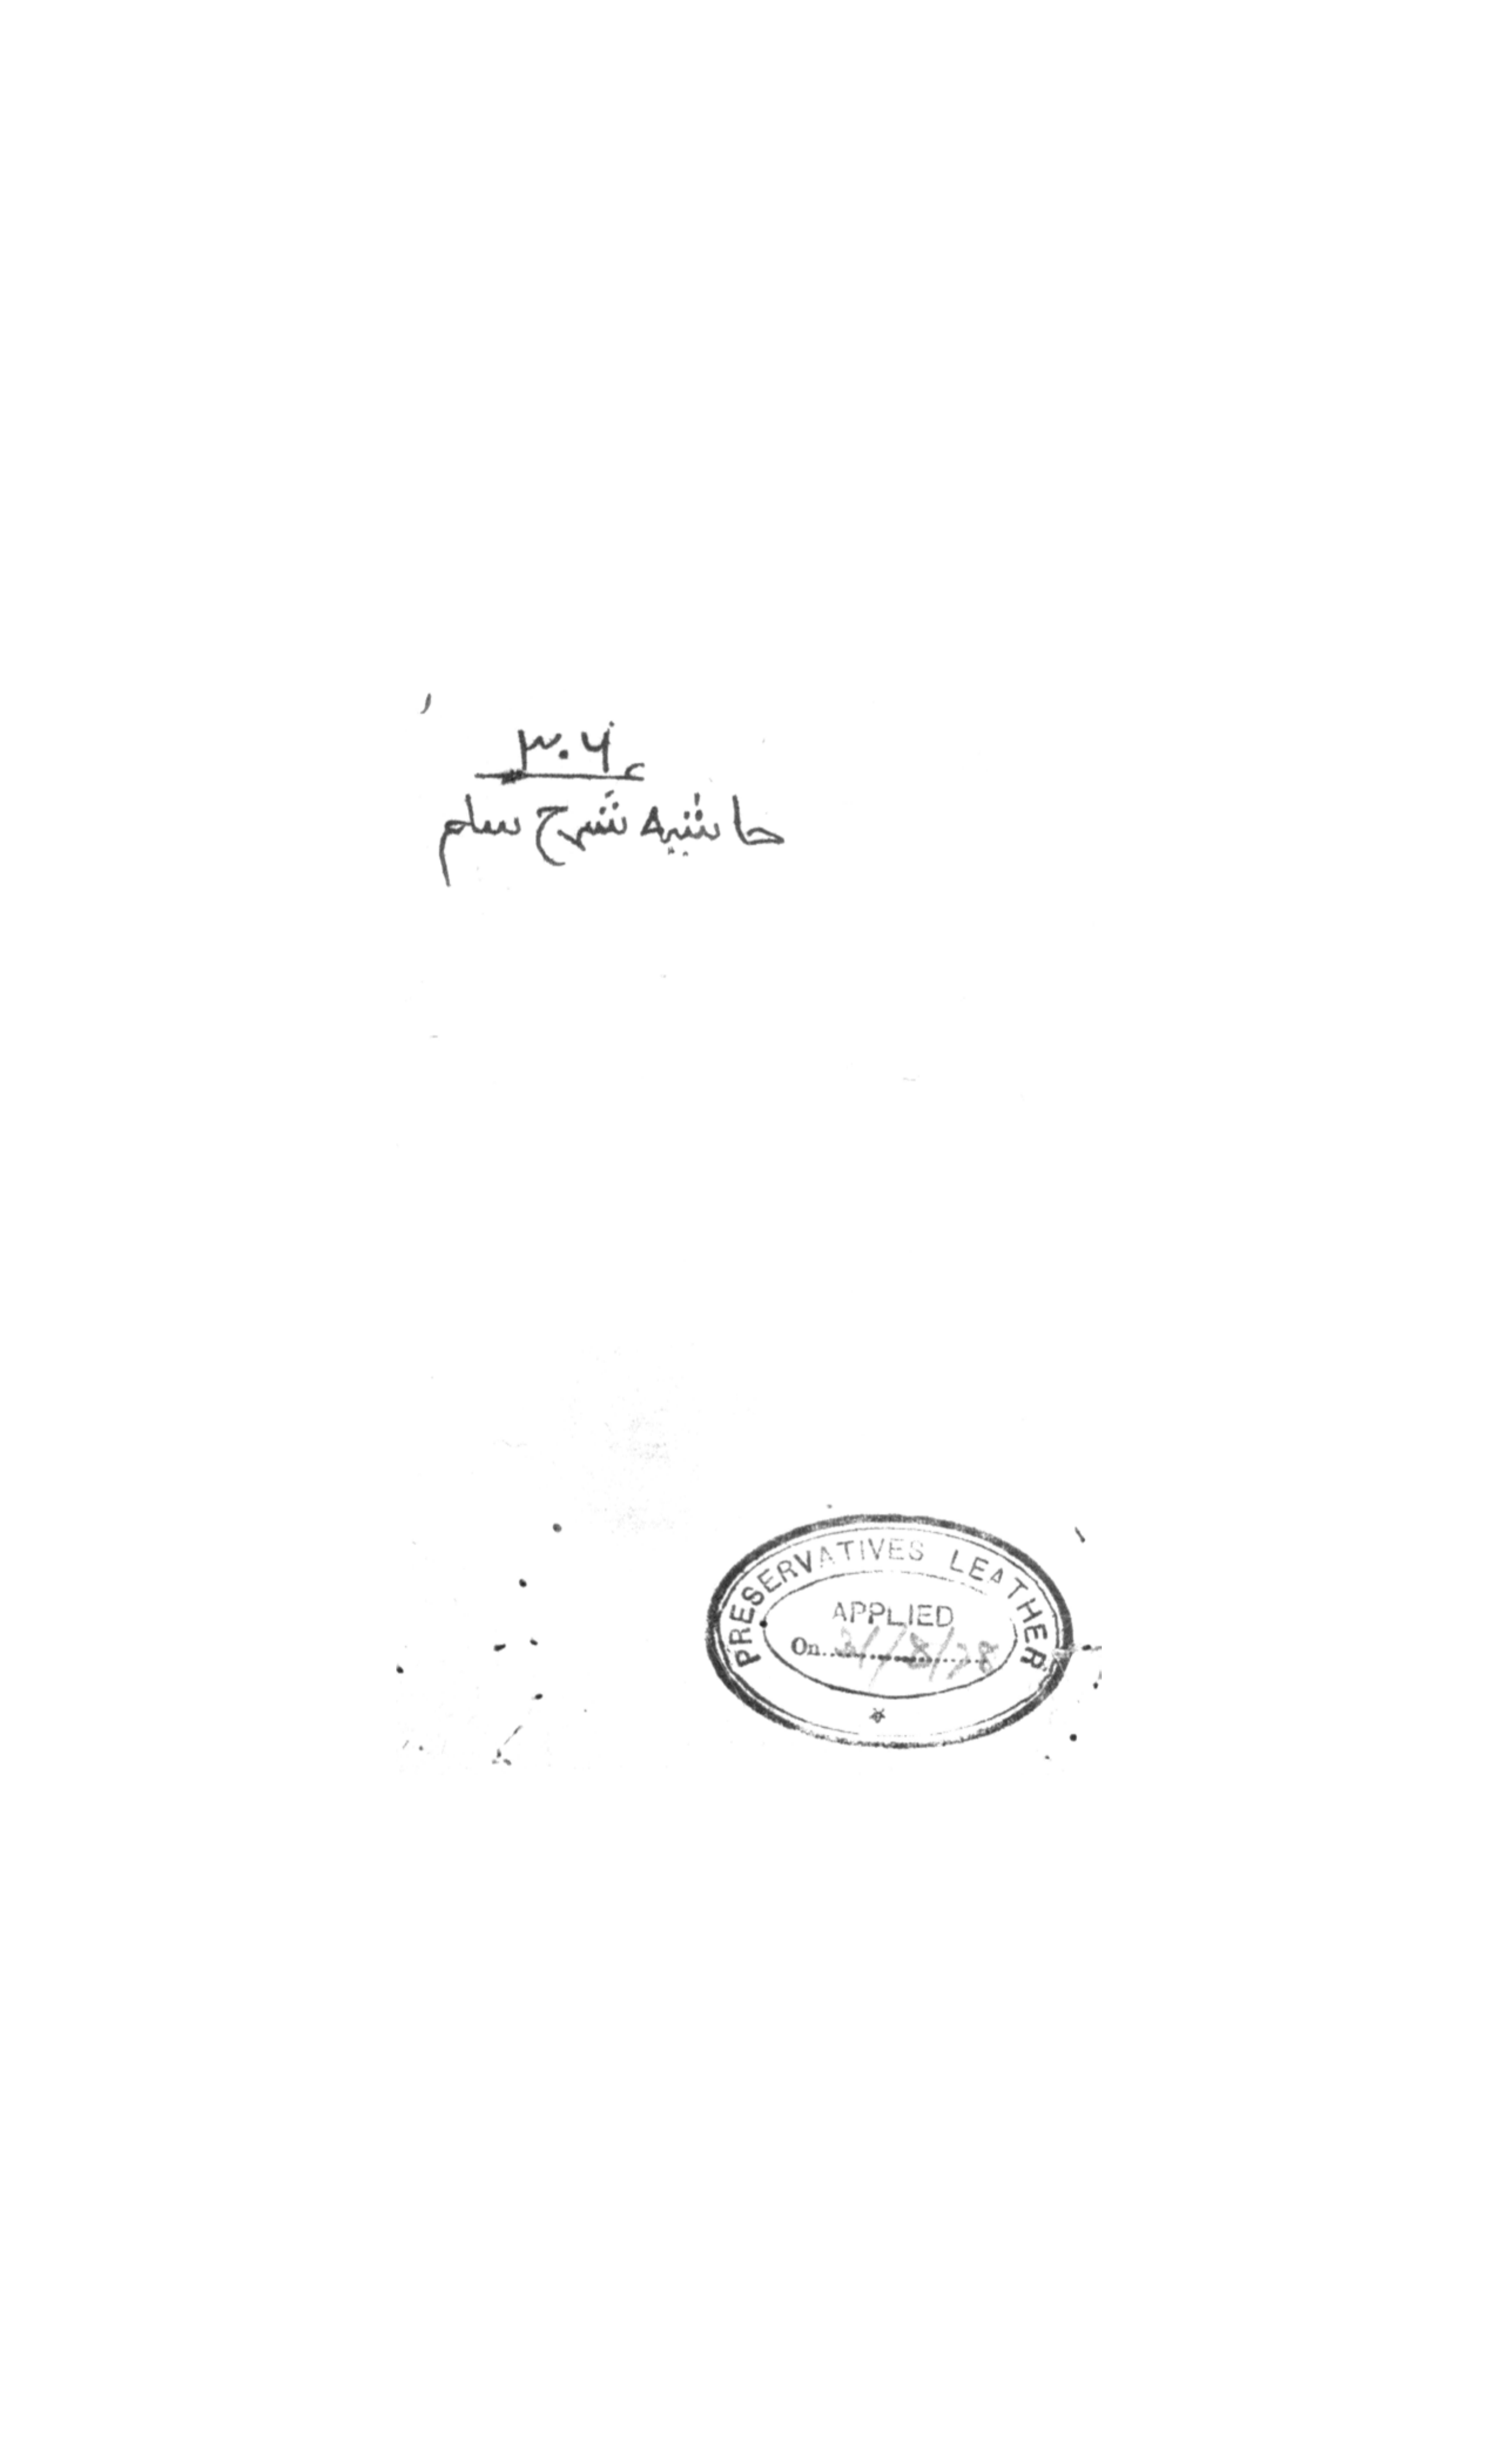 ۳۰۶
حاشیه شرح سلم
PRESERVATIVES LEATHER
APPLIED
On